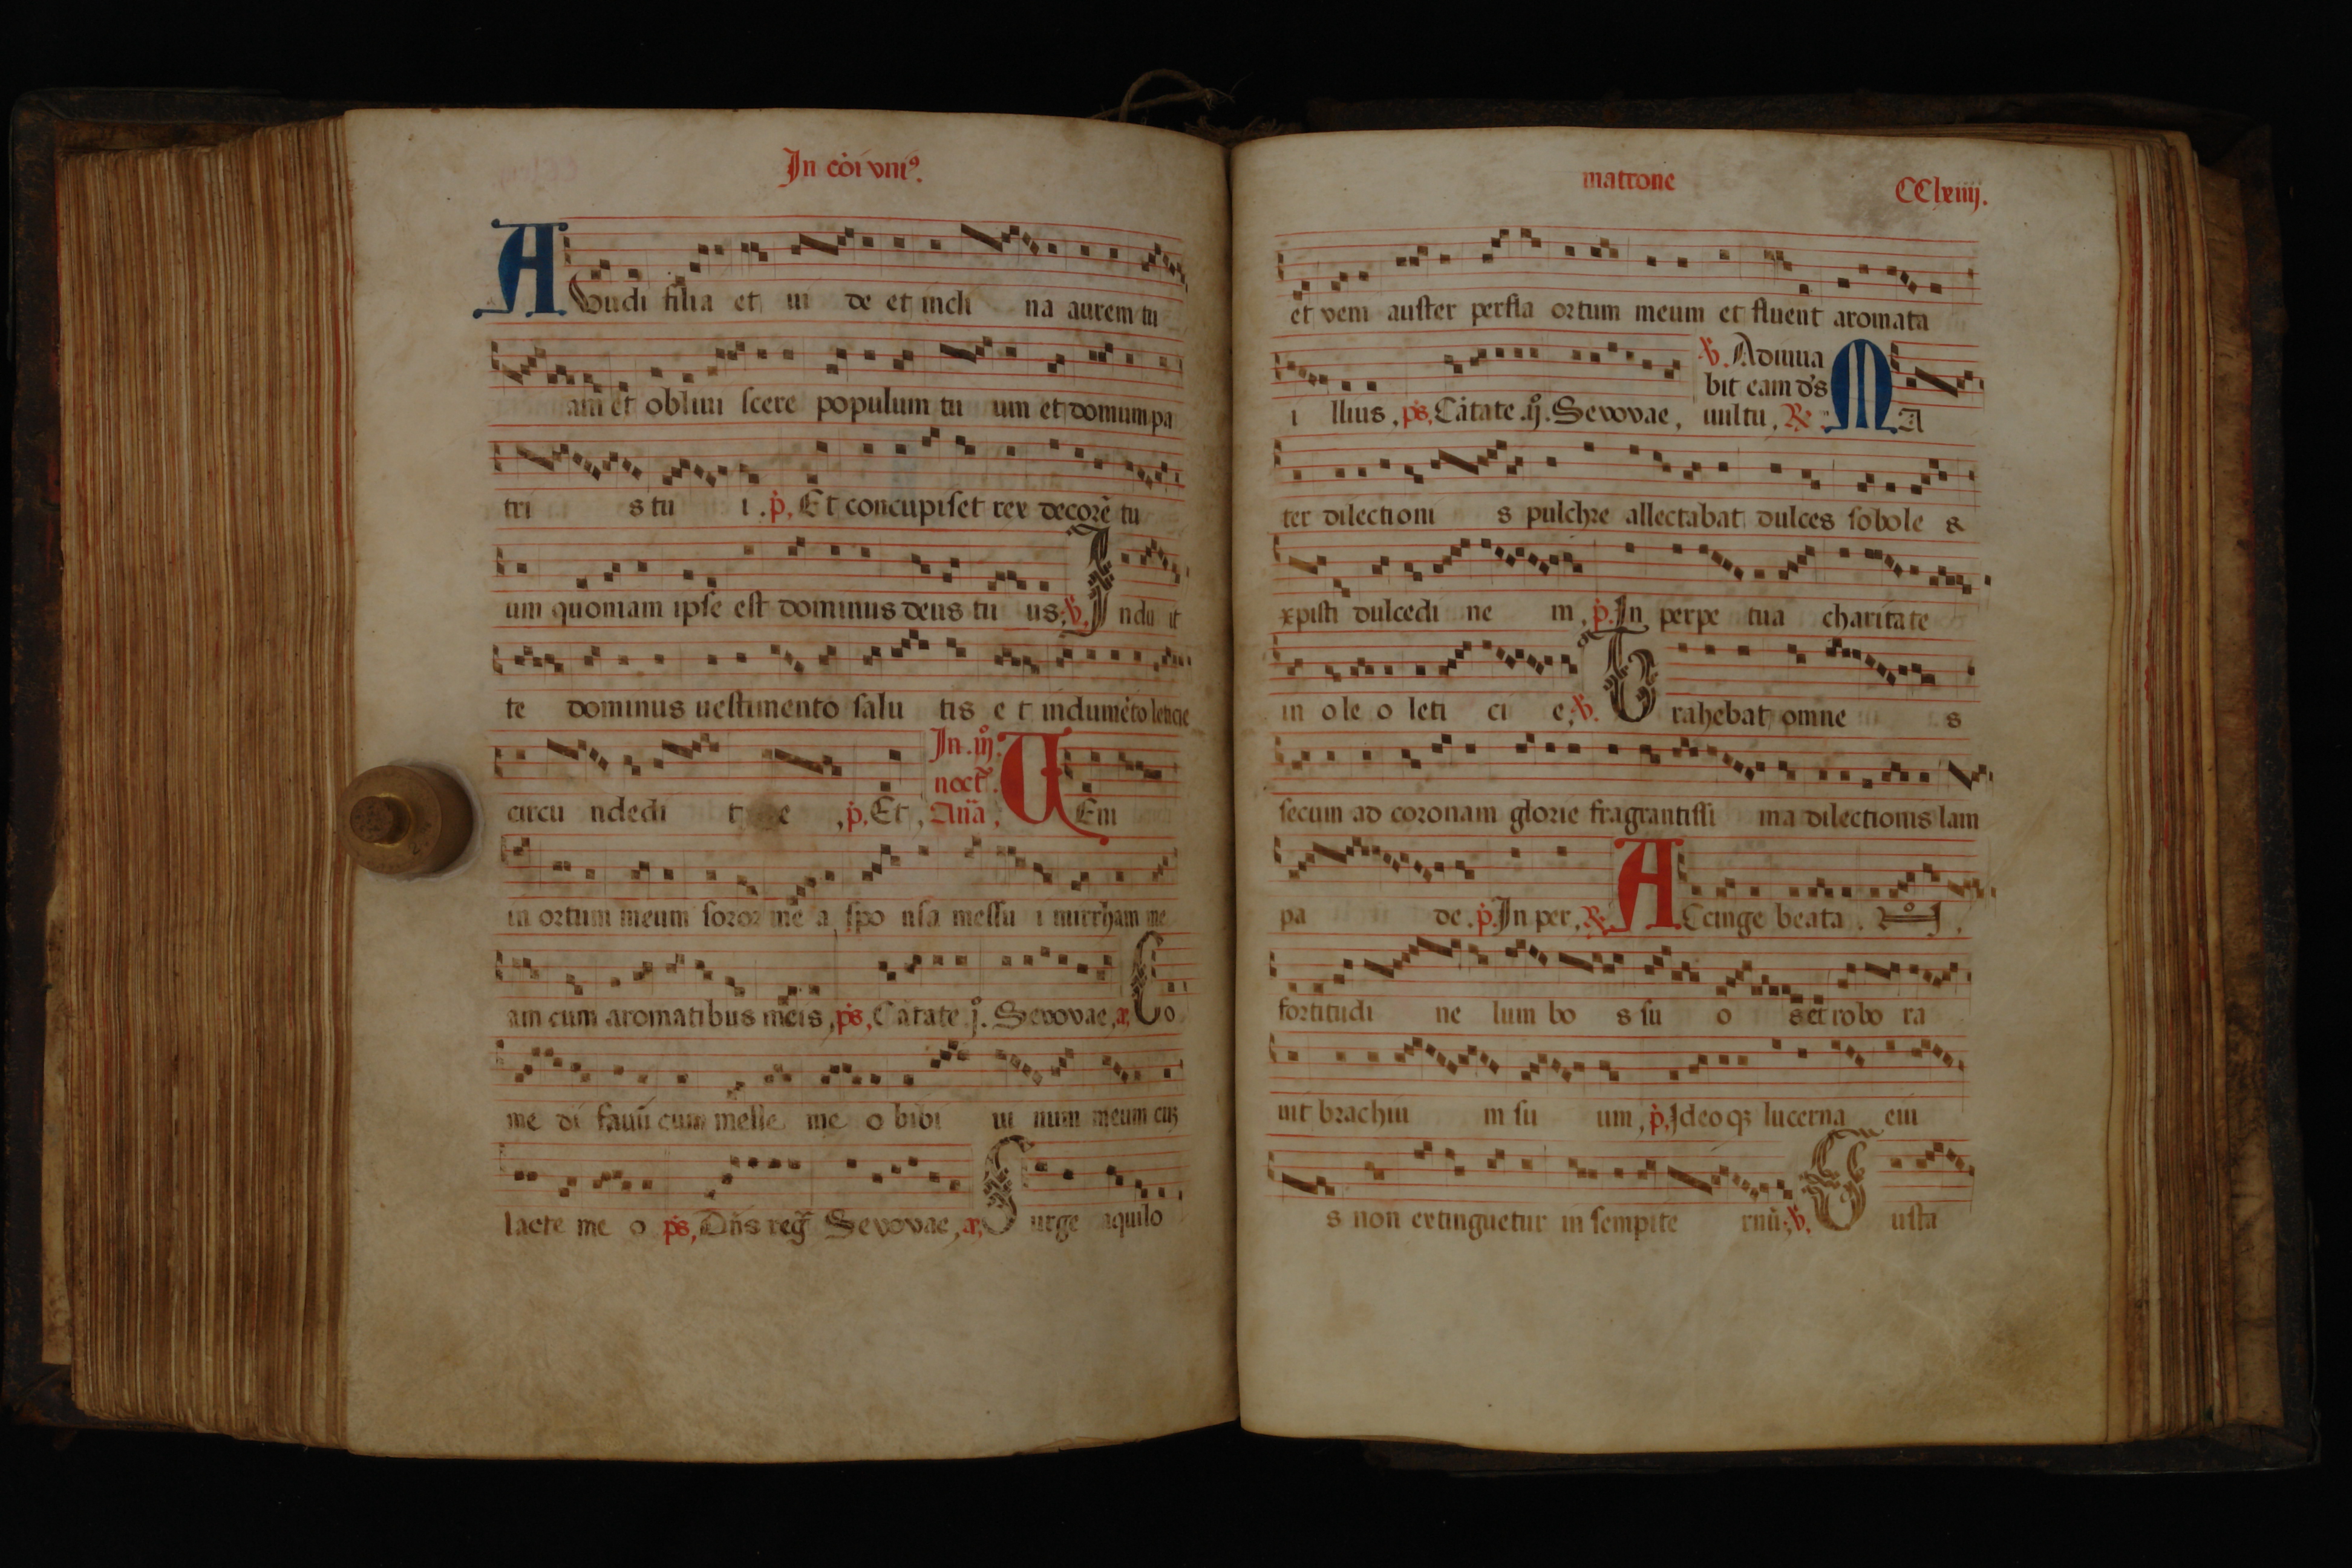 In cōi vniꝰ.
AUudi filia et ui de et incli na aurem tu
am et obliui scere populum tu um et domum pa
tri s tu i. p̄, Et concupiſcet rex decorē tu
um quoniam ipſe eſt dominus deus tu us; ℣. Indu it
te dominus ueſtimento ſalu tis e t indumēto leticie
circu ndedi t e, p̄, Et, In .iij.
noct̄.
Aña, UEni
in ortum meum ſoror me a ſpo nſa meſſu i mirrham me
am cum aromatibus meis, p̄s, Cātate .j. Sevovae, ā, Co
me di fauū cum melle me o bibi ui num meum cuȝ
lacte me o p̄s, Dn̄s reḡ Sevovae, ā, Surge aquilo
matrone
CClxiiij.
et veni auſter perfla ortum meum et fluent aromata
℣. Adiuua
bit eam d̄s
i llius, p̄s, Cātate .ij. Sevovae, uultu, ℟. MA
ter dilectioni s pulchre allectabat dulces ſobole s
xpiſti dulcedi ne m, p̄. In perpe tua charitate
in ole o leti ci e; ℣. Trahebat omne s
ſecum ad coronam glorie fragrantiſſi ma dilectionis lam
pa de. p̄. In per, ℟. ACcinge beata.
fortitudi ne lum bo s ſu o s et robo ra
uit brachiu m ſu um, p̄. Ideoqȝ lucerna eiu
s non extinguetur in ſempite rnū; ℣. Guſta